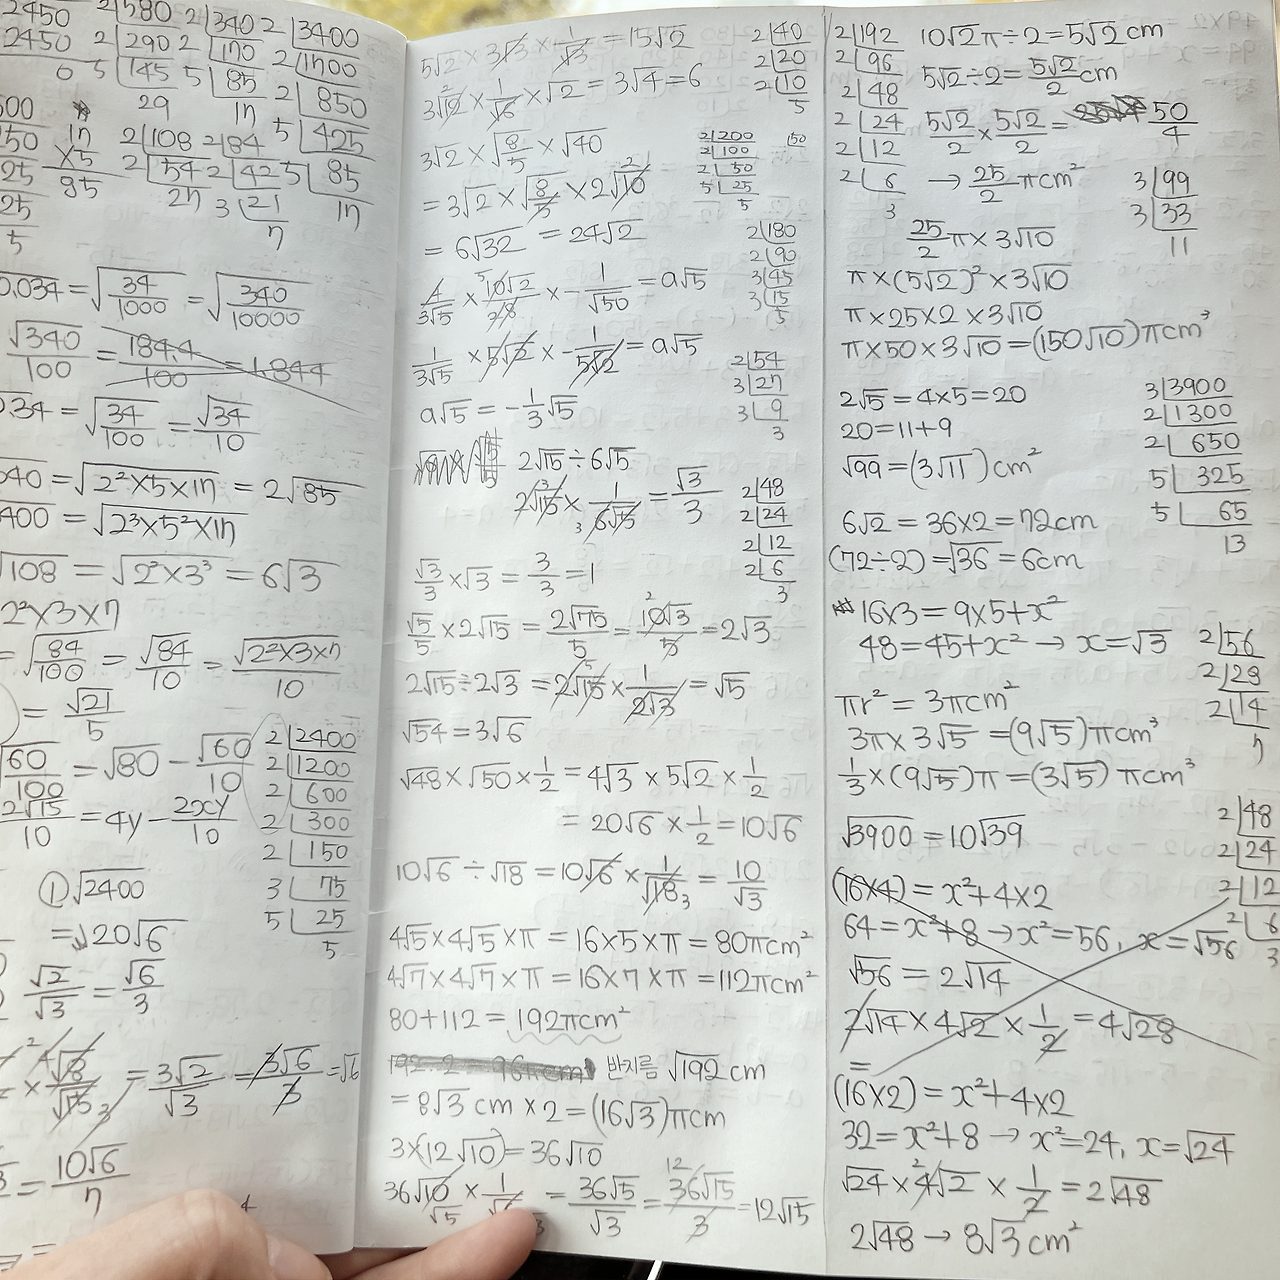 2450
2450
0
2|580
2|290
5|145
29
2|340
2|170
5|85
17
2|3400
2|1700
2|850
5|425
5|85
17
17
×5
85
2|108
2|54
27
2|84
2|42
3|21
7
0.034 = √34/1000 = √340/10000
√340/100 = 184.4/100 = 1.844
034 = √34/100 = √34/10
040 = √2²×5×17 = 2√85
400 = √2³×5²×17
√108 = √2²×3³ = 6√3
2²×3×7
= √84/100 = √84/10 = √2²×3×7/10
= √21/5
√60/100 = √80 - √60/10
2√15/10 = 4y - 2xy/10
2|2400
2|1200
2|600
2|300
2|150
3|75
5|25
5
① √2400
= 20√6
√2/√3 = √6/3
= 3√2/√3 = 3√6/3 = √6
= 10√6/7
5√2 × 3√3 × 1/√3 = 15√2
3√12 × 1/√6 × √2 = 3√4 = 6
3√2 × √8/5 × √40
= 3√2 × √8/5 × 2√10
= 6√32 = 24√2
4/3√5 × 10√2/√8 × -1/√50 = a√5
1/3√5 × 5√2 × -1/5√2 = a√5
a√5 = -1/3√5
2√15 ÷ 6√5
2√15 × 1/6√5 = √3/3
√3/3 × √3 = 3/3 = 1
√5/5 × 2√15 = 2√75/5 = 10√3/5 = 2√3
2√15 ÷ 2√3 = 2√15 × 1/2√3 = √5
√54 = 3√6
√48 × √50 × 1/2 = 4√3 × 5√2 × 1/2
= 20√6 × 1/2 = 10√6
10√6 ÷ √18 = 10√6 × 1/√18 = 10/√3
4√5 × 4√5 × π = 16×5×π = 80πcm²
4√7 × 4√7 × π = 16×7×π = 112πcm²
80+112 = 192πcm²
반지름 √192cm
= 8√3 cm × 2 = (16√3)πcm
3×(12√10) = 36√10
36√10 × 1/√6 = 36√5/√3 = 36√15/3 = 12√15
2|40
2|20
2|10
5
2|200
2|100
2|50
5|25
5
150
2|180
2|90
3|45
3|15
5
2|54
3|27
3|9
3
2|48
2|24
2|12
2|6
3
2|192
2|96
2|48
2|24
2|12
2|6
3
10√2π ÷ 2 = 5√2 cm
5√2 ÷ 2 = 5√2/2 cm
5√2/2 × 5√2/2 = 50/4
→ 25/2 πcm²
25/2 π × 3√10
π × (5√2)² × 3√10
π × 25 × 2 × 3√10
π × 50 × 3√10 = (150√10)πcm³
2√5 = 4×5 = 20
20 = 11+9
√99 = (3√11)cm²
6√2 = 36×2 = 72cm
(72÷2) = √36 = 6cm
16×3 = 9×5+x²
48 = 45+x² → x = √3
πr² = 3πcm²
3π × 3√5 = (9√5)πcm³
1/3 × (9√5)π = (3√5)πcm³
√3900 = 10√39
(16×4) = x²+4×2
64 = x²+8 → x² = 56, x = √56
√56 = 2√14
2√14 × 4√2 × 1/2 = 4√28
=
(16×2) = x²+4×2
32 = x²+8 → x² = 24, x = √24
√24 × 4√2 × 1/2 = 2√48
2√48 → 8√3 cm²
3|99
3|33
11
3|3900
2|1300
2|650
5|325
5|65
13
2|56
2|28
2|14
7
2|48
2|24
2|12
2|6
3